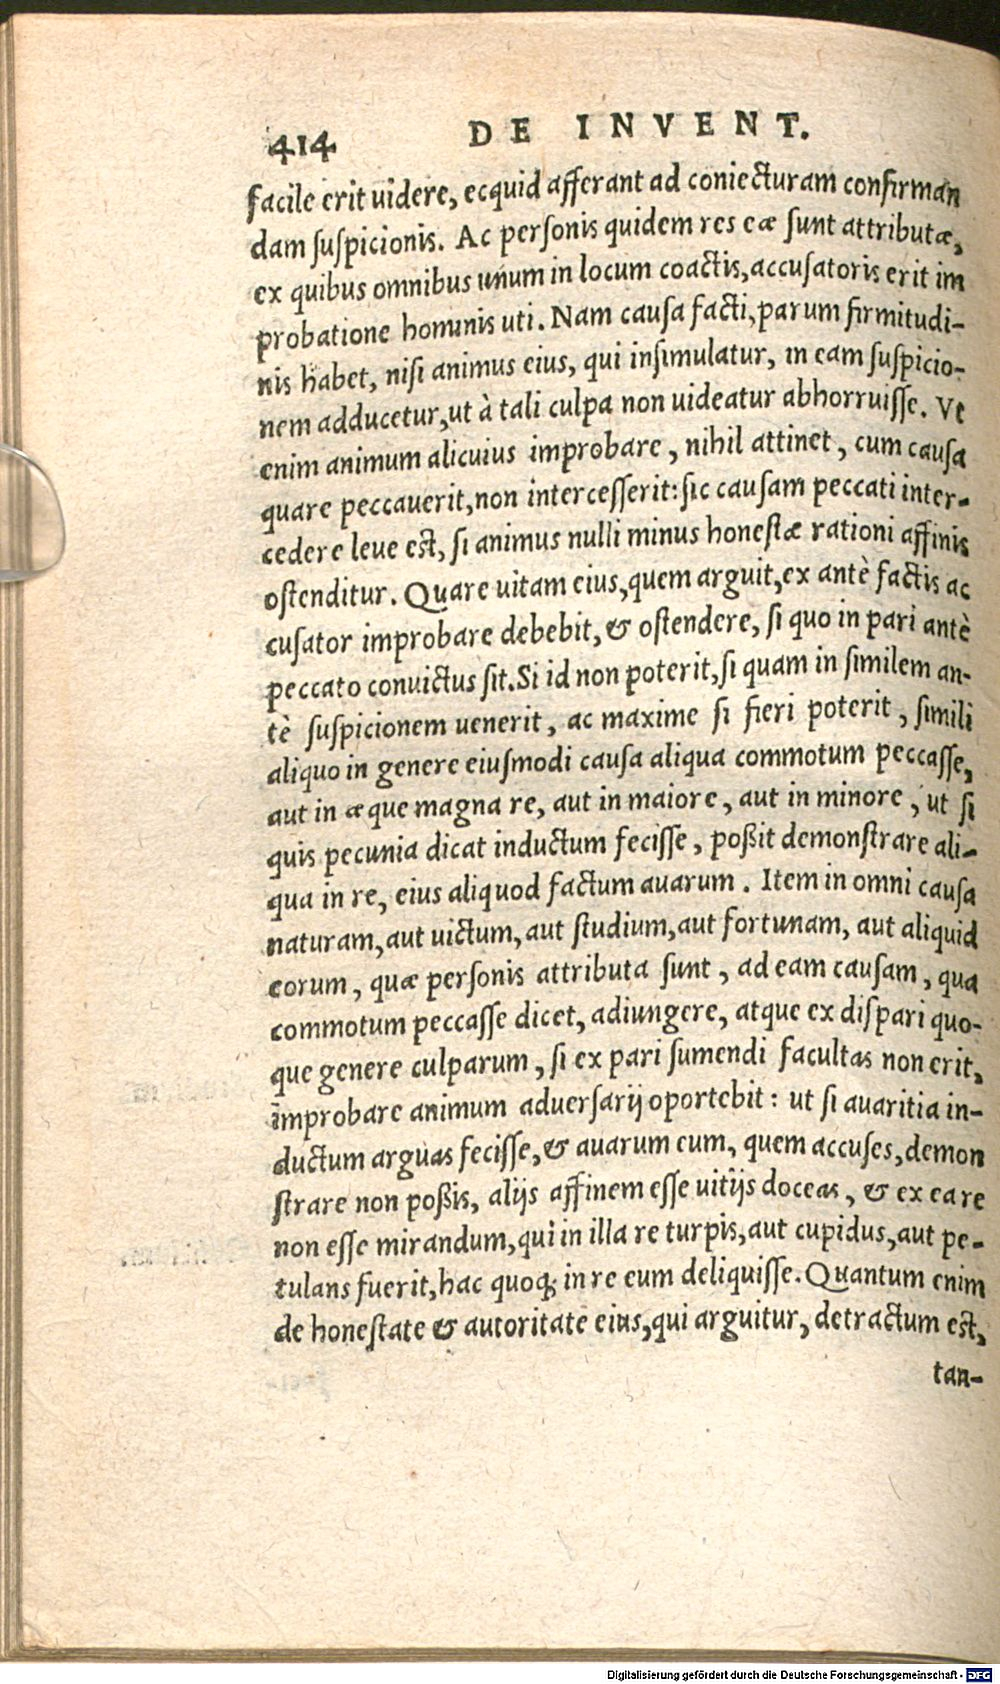 414 DE INVENT.
facile erit uidere, ecquid afferant ad coniecturam confirman
dam suspicionis. Ac personis quidem res eæ sunt attributæ,
ex quibus omnibus unum in locum coactis, accusatoris erit im
probatione hominis uti. Nam causa facti, parum firmitudi-
nis habet, nisi animus eius, qui insimulatur, in eam suspicio-
nem adducetur, ut à tali culpa non uideatur abhorruisse. Vt
enim animum alicuius improbare, nihil attinet, cum causa
quare peccauerit, non intercesserit: sic causam peccati inter-
cedere leue est, si animus nulli minus honestæ rationi affinis
ostenditur. Quare uitam eius, quem arguit, ex antè factis ac
cusator improbare debebit, & ostendere, si quo in pari antè
peccato conuictus sit. Si id non poterit, si quam in similem an-
tè suspicionem uenerit, ac maxime si fieri poterit, simili
aliquo in genere eiusmodi causa aliqua commotum peccasse,
aut in æque magna re, aut in maiore, aut in minore, ut si
quis pecunia dicat inductum fecisse, poßit demonstrare ali-
qua in re, eius aliquod factum auarum. Item in omni causa
naturam, aut uictum, aut studium, aut fortunam, aut aliquid
eorum, quæ personis attributa sunt, ad eam causam, qua
commotum peccasse dicet, adiungere, atque ex dispari quo-
que genere culparum, si ex pari sumendi facultas non erit,
improbare animum aduersarij oportebit: ut si auaritia in-
ductum arguas fecisse, & auarum eum, quem accuses, demon
strare non poßis, alijs affinem esse uitijs doceas, & ex ea re
non esse mirandum, qui in illa re turpis, aut cupidus, aut pe-
tulans fuerit, hac quoq; in re eum deliquisse. Quantum enim
de honestate & autoritate eius, qui arguitur, detractum est,
tan-
Digitalisierung gefördert durch die Deutsche Forschungsgemeinschaft - DFG